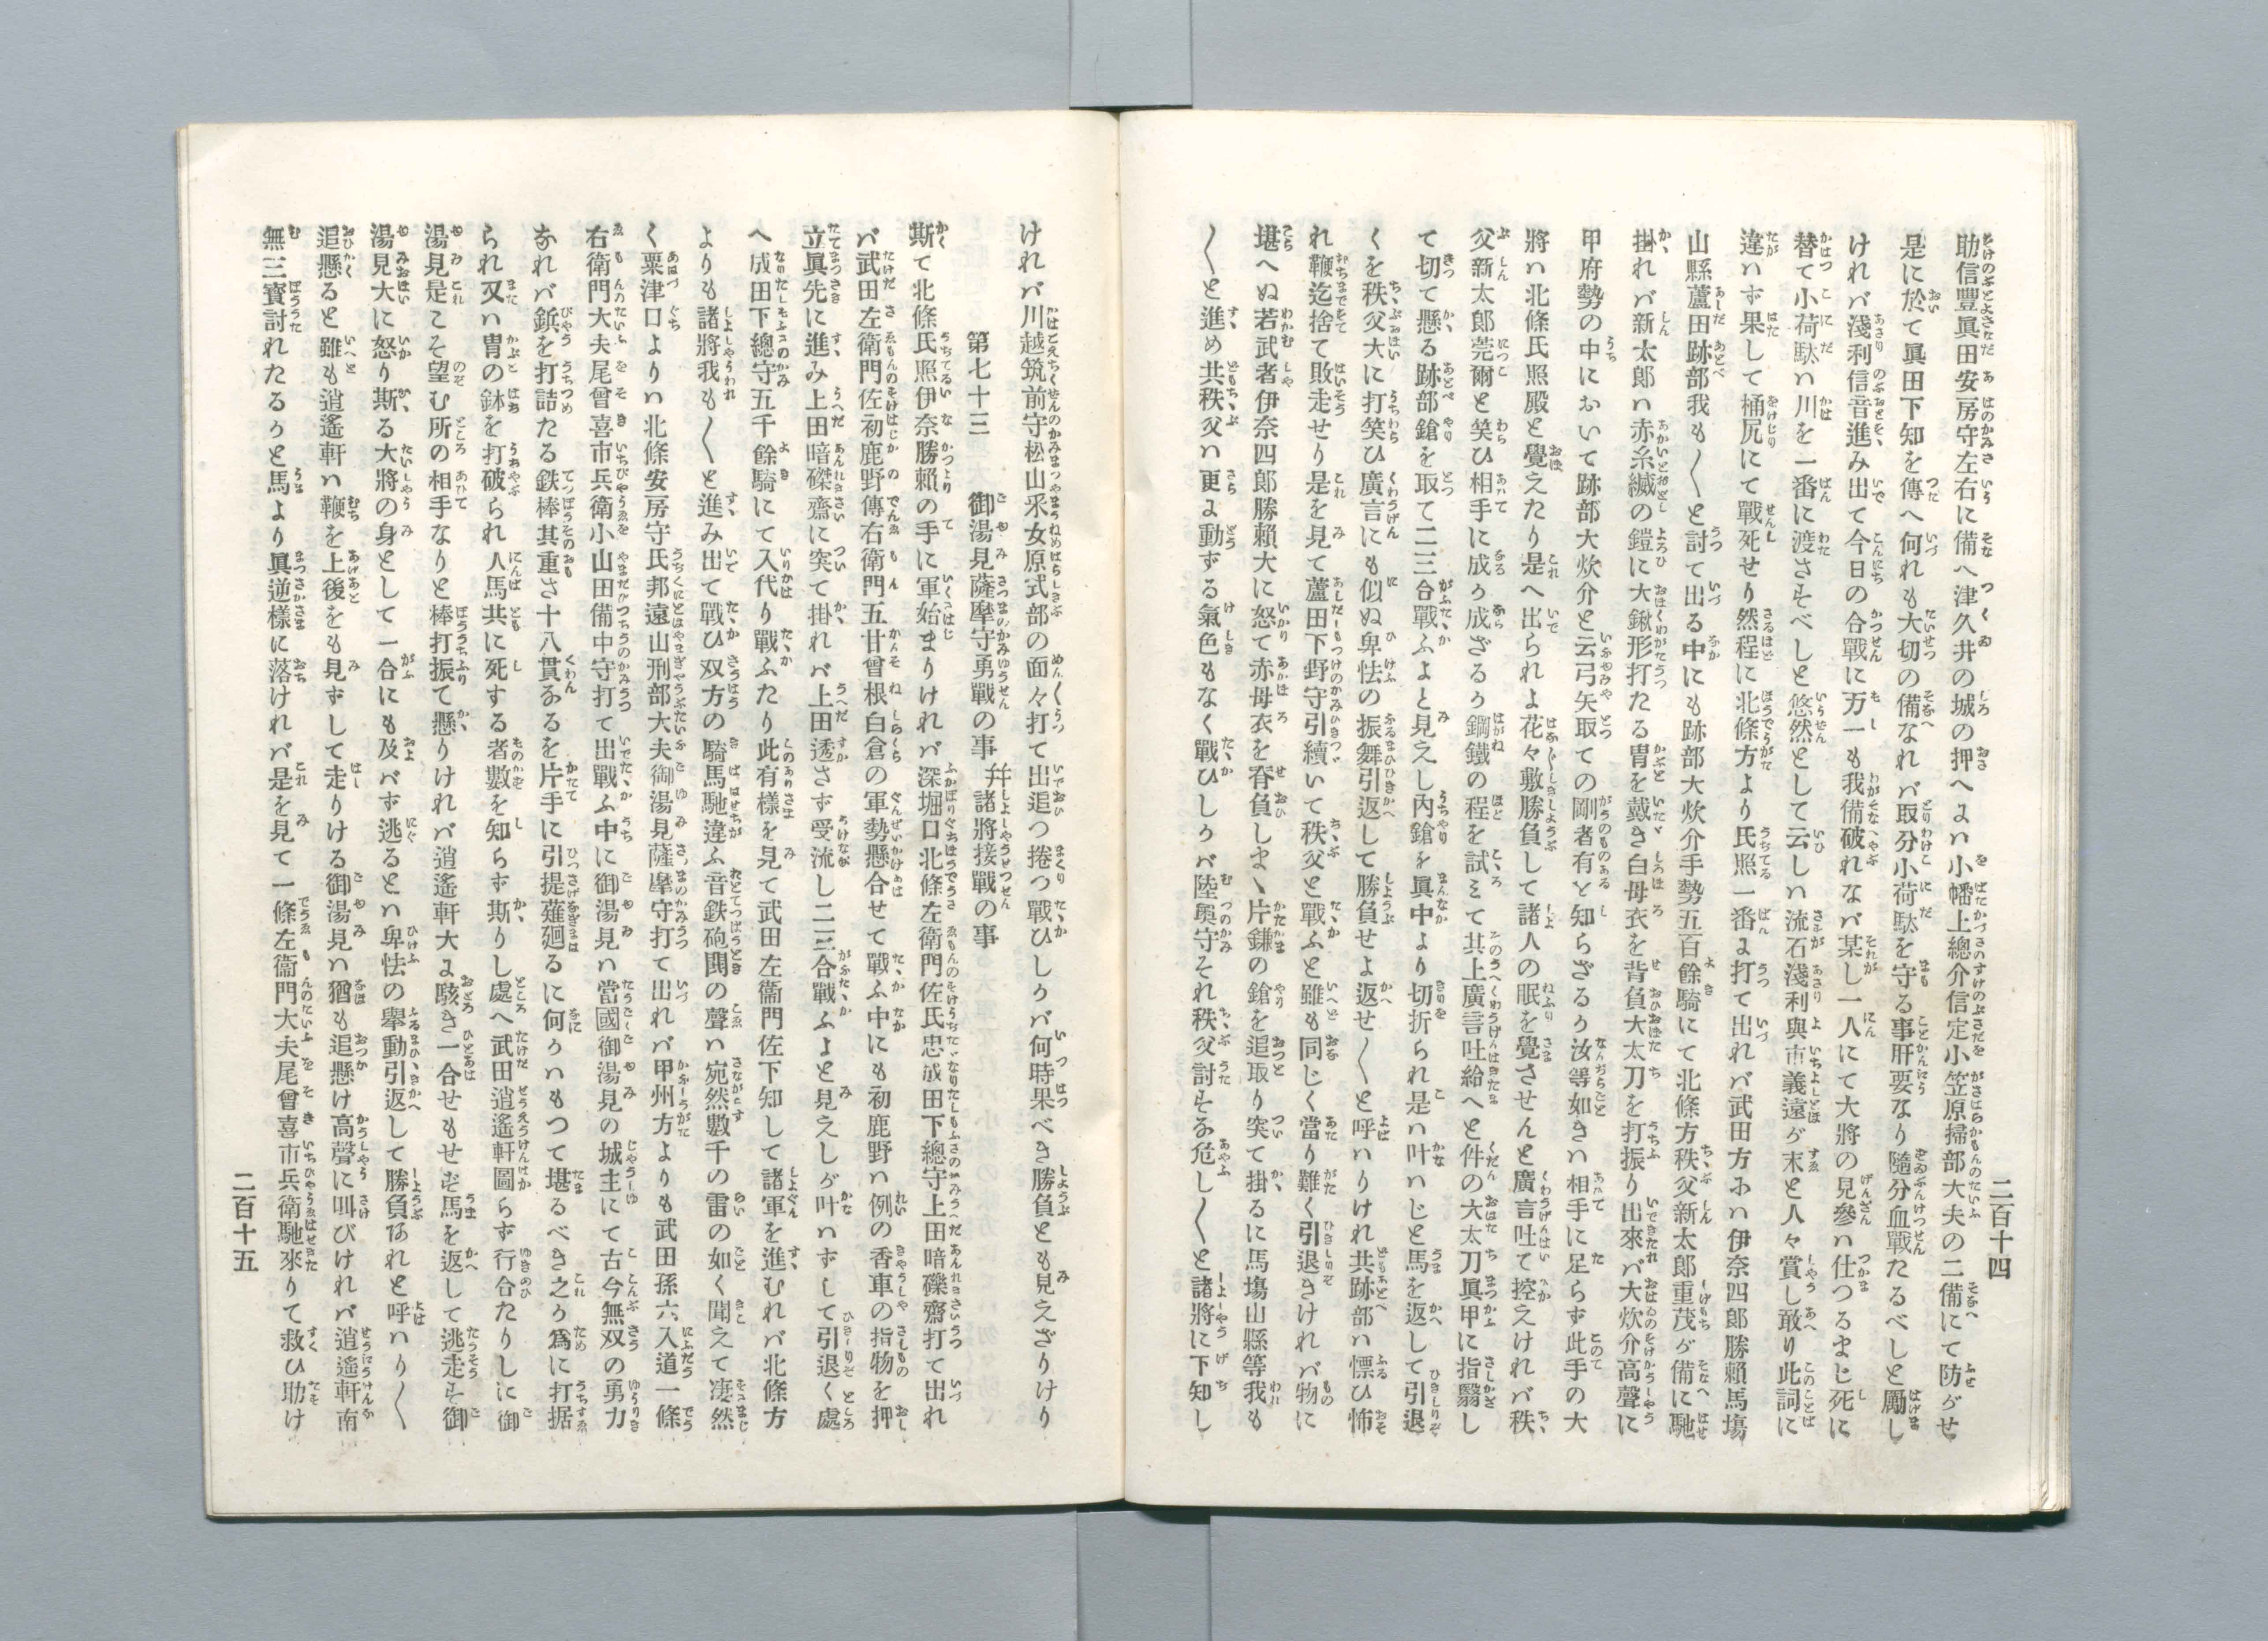 二百十四
助信豐眞田安房守左右に備へ津久井の城の押へよハ小幡上總介信定小笠原掃部大夫の二備にて防がせ
是に於て眞田下知を傳へ何れも大切の備なれバ取分小荷駄を守る事肝要なり隨分血戰たるべしと勵し
けれバ淺利信音進み出て今日の合戰に万一も我備破れなバ某し一人にて大將の見參ハ仕つるまじ死に
替て小荷駄ハ川を一番に渡さすべしと悠然として云しハ流石淺利與市義遠が末と人々賞し敢り此詞に
違ハず果して桶尻にて戰死せり然程に北條方より氏照一番よ打て出れバ武田方ホハ伊奈四郎勝賴馬塲
山縣蘆田跡部我も〱と討て出る中にも跡部大炊介手勢五百餘騎にて北條方秩父新太郎重茂が備に馳
掛れバ新太郎ハ赤糸縅の鎧に大鍬形打たる冑を戴き白母衣を背負大太刀を打振り出來バ大炊介高聲に
甲府勢の中において跡部大炊介と云弓矢取ての剛者有と知らざるか汝等如きハ相手に足らず此手の大
將ハ北條氏照殿と覺えたり是へ出られよ花々敷勝負して諸人の眠を覺させんと廣言吐て控えけれバ秩
父新太郎莞爾と笑ひ相手に成か成ざるか鋼鐵の程を試ミて其上廣言吐給へと件の大太刀眞甲に指翳し
て切て懸る跡部鎗を取て二三合戰ふよと見えし內鎗を眞中より切折られ是ハ叶ハじと馬を返して引退
くを秩父大に打笑ひ廣言にも似ぬ卑怯の振舞引返して勝負せよ返せ〱と呼ハりけれ共跡部ハ慓ひ怖
れ鞭迄捨て敗走せり是を見て蘆田下野守引續いて秩父と戰ふと雖も同じく當り難く引退きけれバ物に
堪へぬ若武者伊奈四郎勝賴大に怒て赤母衣を脊負しまゝ片鎌の鎗を追取り突て掛るに馬塲山縣等我も
〱と進め共秩父ハ更よ動ずる氣色もなく戰ひしかバ陸奧守それ秩父討する危し〱と諸將に下知し
けれバ川越筑前守松山采女原式部の面々打て出追つ捲つ戰ひしかバ何時果べき勝負とも見えざりけり
第七十三　御湯見薩摩守勇戰の事　幷諸將接戰の事
斯て北條氏照伊奈勝賴の手に軍始まりけれバ深堀口北條左衛門佐氏忠成田下總守上田暗礫齋打て出れ
バ武田左衛門佐初鹿野傳右衛門五甘曾根白倉の軍勢懸合せて戰ふ中にも初鹿野ハ例の香車の指物を押
立眞先に進み上田暗礫齋に突て掛れバ上田透さず受流し二三合戰ふよと見えしが叶ハずして引退く處
へ成田下總守五千餘騎にて入代り戰ふたり此有樣を見て武田左衞門佐下知して諸軍を進むれバ北條方
よりも諸將我も〱と進み出て戰ひ双方の騎馬馳違ふ音鉄砲鬨の聲ハ宛然數千の雷の如く聞えて凄然
く粟津口よりハ北條安房守氏邦遠山刑部大夫御湯見薩摩守打て出れバ甲州方よりも武田孫六入道一條
右衛門大夫尾曾喜市兵衛小山田備中守打て出戰ふ中に御湯見ハ當國御湯見の城主にて古今無双の勇力
なれバ鋲を打詰たる鉄棒其重さ十八貫あるを片手に引提薙廻るに何かハもつて堪るべき之か爲に打据
られ又ハ冑の鉢を打破られ人馬共に死する者數を知らず斯りし處へ武田逍遙軒圖らず行合たりしに御
湯見是こそ望む所の相手なりと棒打振て懸りけれバ逍遙軒大よ駭き一合せもせず馬を返して逃走を御
湯見大に怒り斯る大將の身として一合にも及バず逃るとハ卑怯の擧動引返して勝負あれと呼ハり〱
追懸ると雖も逍遙軒ハ鞭を上後をも見ずして走りける御湯見ハ猶も追懸け高聲に叫びけれバ逍遙軒南
無三寶討れたるかと馬より眞逆樣に落けれバ是を見て一條左衞門大夫尾曾喜市兵衛馳來りて救ひ助け
二百十五